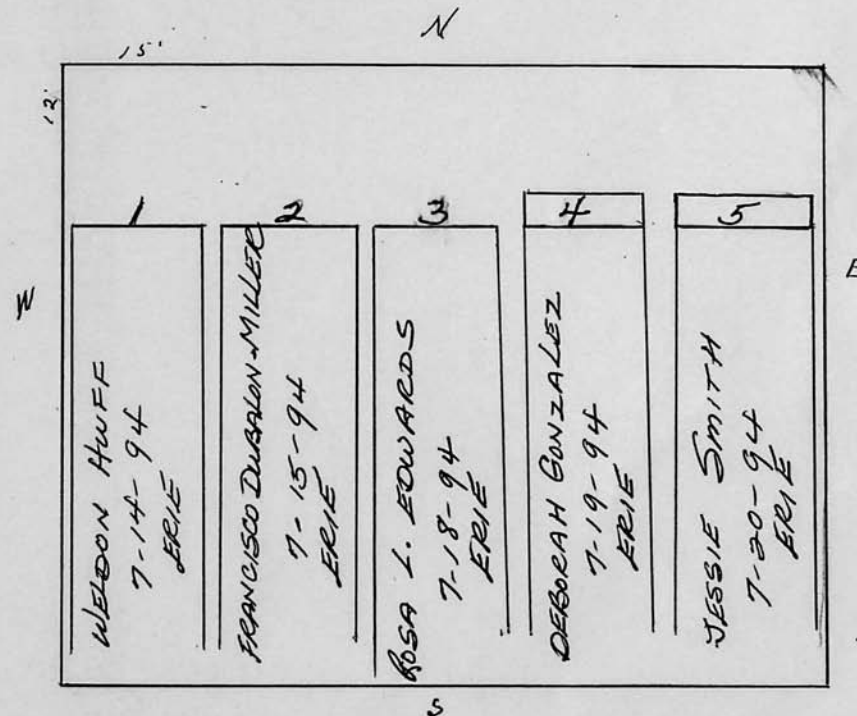 N
15'
12'
1
2
3
4
5
W
E
WELDON HUFF
7-14-94
ERIE
FRANCISCO DUBALON-MILLER
7-15-94
ERIE
ROSA L. EDWARDS
7-18-94
ERIE
DEBORAH GONZALEZ
7-19-94
ERIE
JESSIE SMITH
7-20-94
ERIE
S